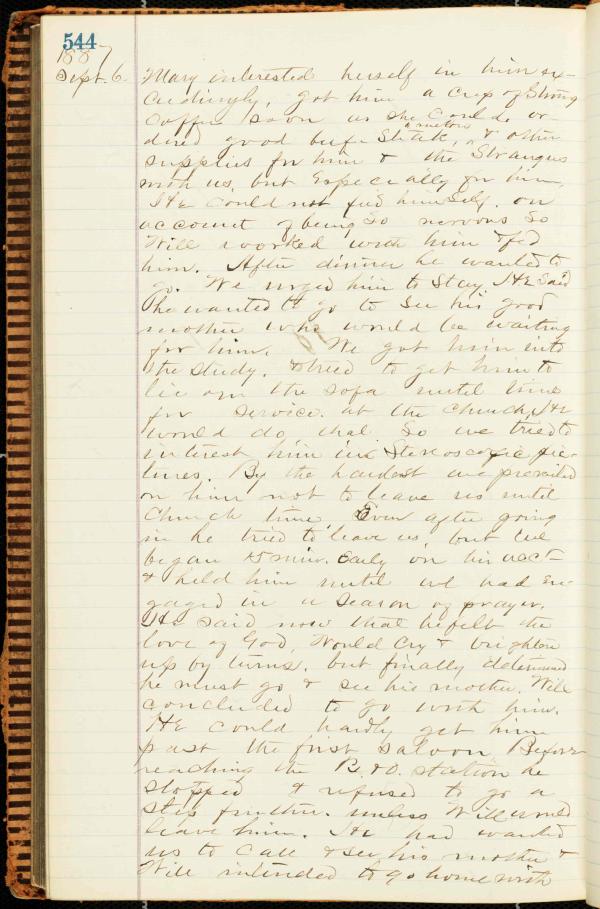 544
1887
Sept. 6. Mary interested herself in him ex-
ceedingly, got him a cup of Strong
Coffee soon as she could, or-
dered good beef Steak, & other
supplies for him & the Strangers
with us, but Especially for him,
He could not feed himself, on
account of being so nervous So
Will worked with him & fed
him. After dinner he wanted to
go. We urged him to Stay. He Said
he wanted to go to see his good
mother who would be waiting
for him. We got him into
the study, & tried to get him to
lie on the sofa until time
for service at the church, He
would do that. So we tried to
interest him in Stereoscopic pic-
tures. By the hardest we prevailed
on him not to leave us until
Church time, Even after going
in he tried to leave us, but we
began 15 min. Early on his acct
& held him until we had En-
gaged in a Season of prayer.
He said now that he felt the
love of God, Would Cry & brighten
up by turns, but finally determined
he must go & see his mother. Will
concluded to go with him.
He could hardly get him
past the first Saloon Before
reaching the B. & O. station he
stopped & refused to go a
step further unless Will would
leave him. He had wanted
us to Call & see his mother &
Will intended to go home with